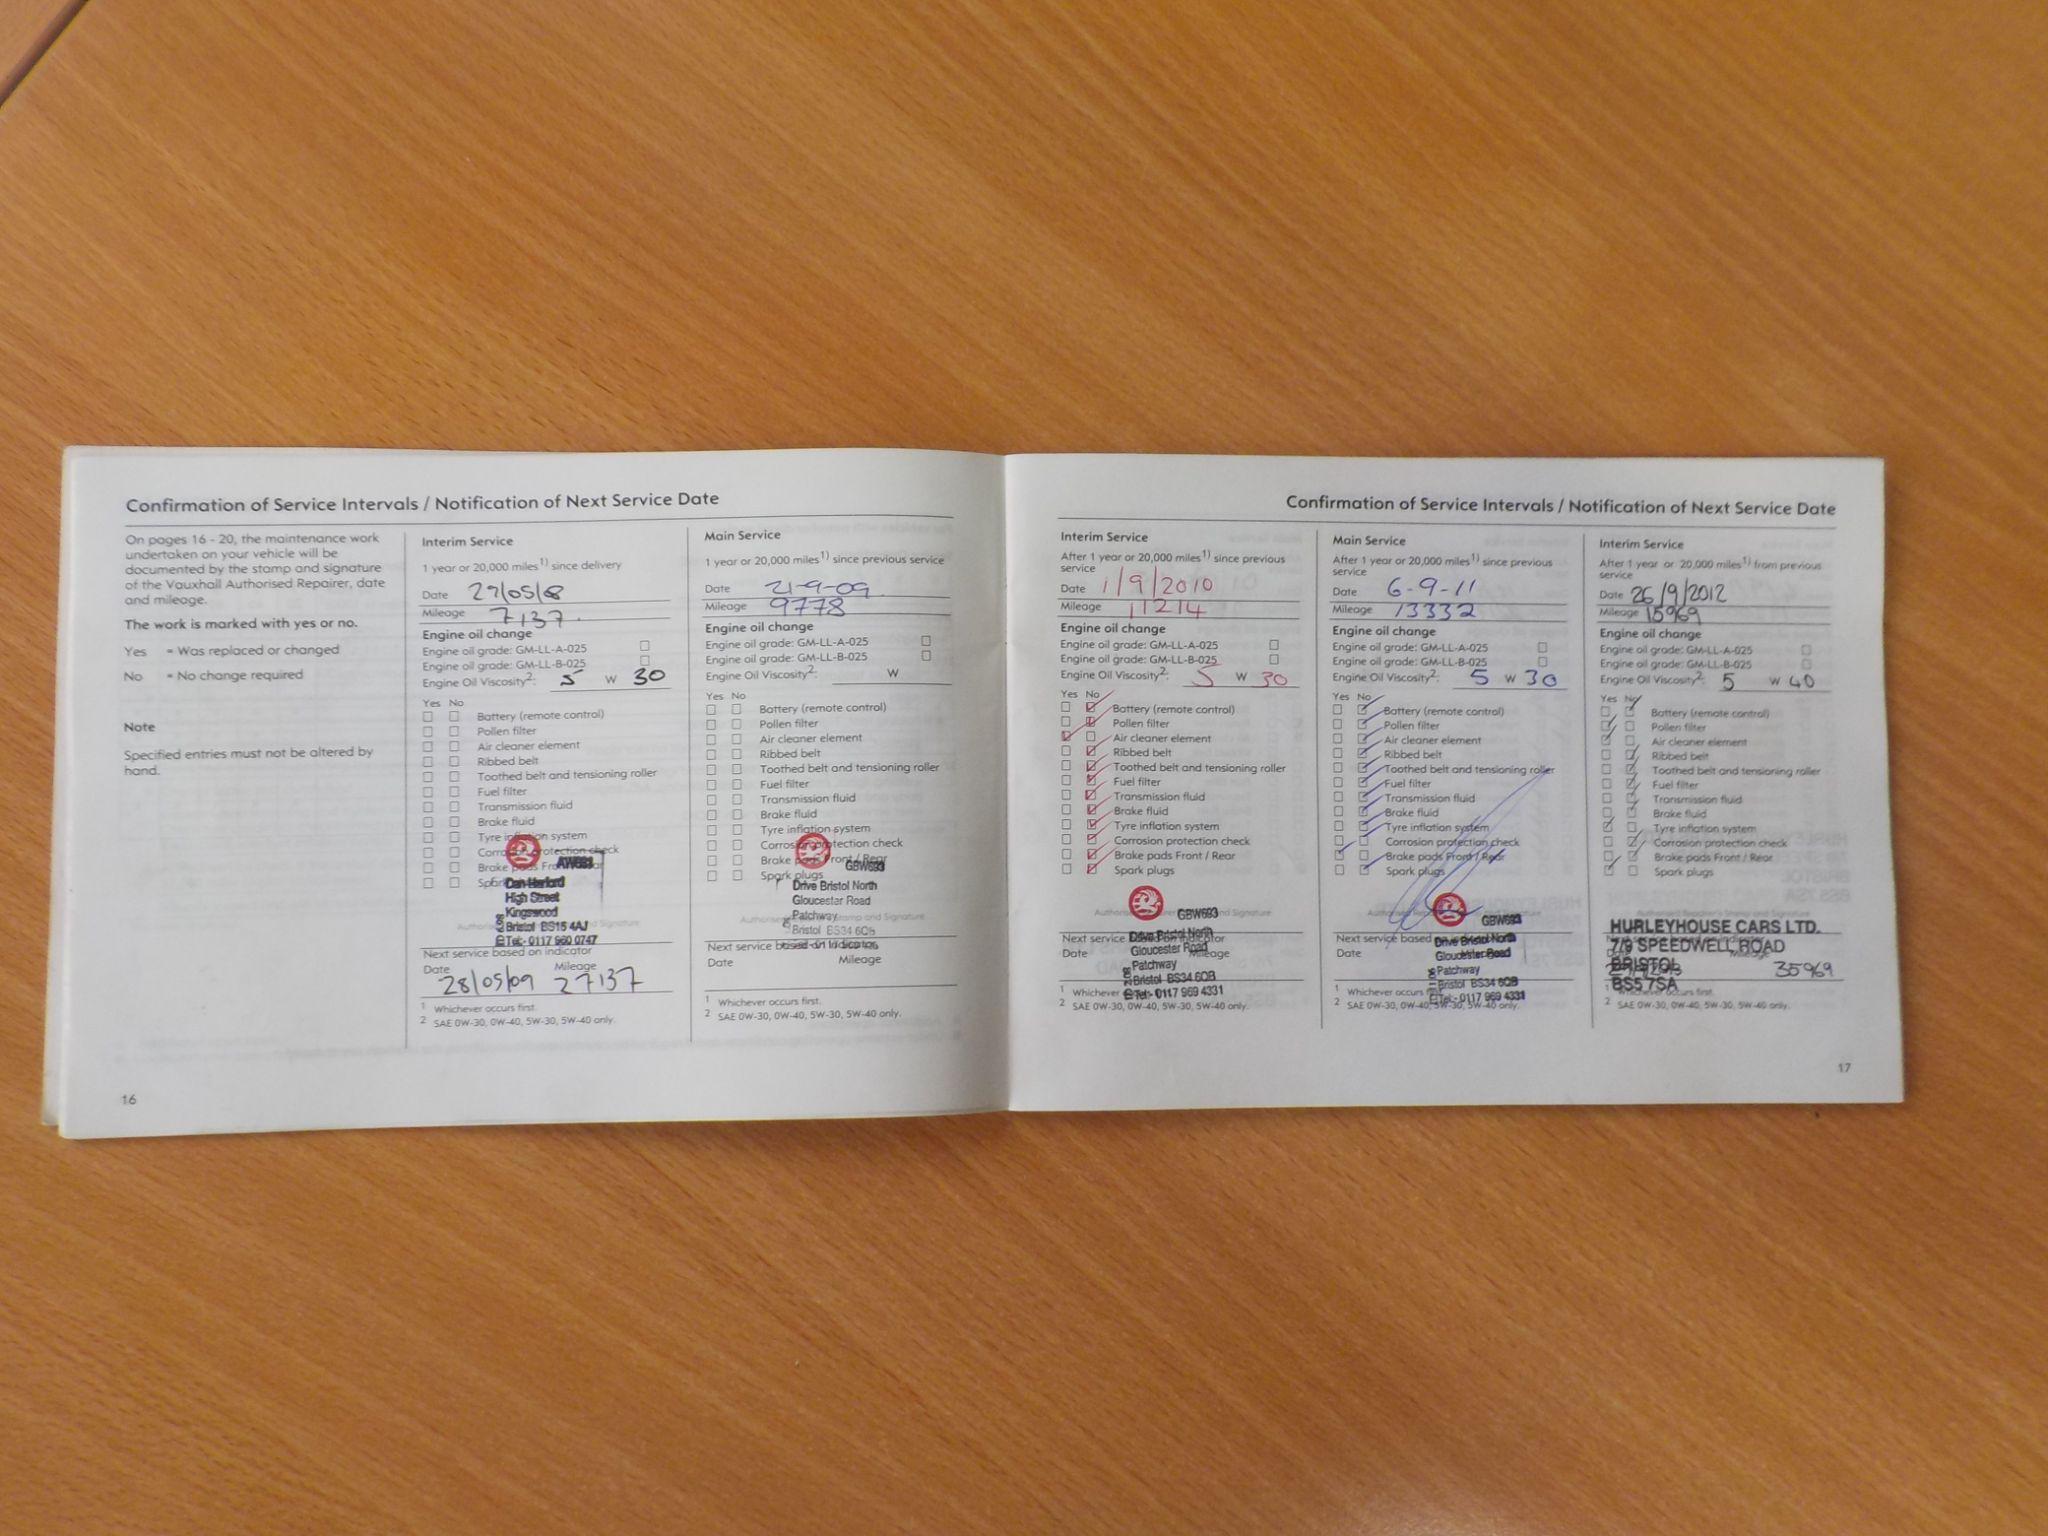 Confirmation of Service Intervals / Notification of Next Service Date
On pages 16 - 20, the maintenance work
undertaken on your vehicle will be
documented by the stamp and signature
of the Vauxhall Authorised Repairer, date
and mileage.
The work is marked with yes or no.
Yes = Was replaced or changed
No = No change required
Note
Specified entries must not be altered by
hand.
16
Interim Service
1 year or 20,000 miles1) since delivery
Date 29/05/08
Mileage 7137
Engine oil change
Engine oil grade: GM-LL-A-025
Engine oil grade: GM-LL-B-025
Engine Oil Viscosity2: 5 W 30
Yes No
Battery (remote control)
Pollen filter
Air cleaner element
Ribbed belt
Toothed belt and tensioning roller
Fuel filter
Transmission fluid
Brake fluid
Tyre inflation system
Corrosion protection check
Brake pads Front / Rear
AW691
Dan Harford
High Street
Kingswood
Bristol BS15 4AJ
Tel:- 0117 960 0747
Next service based on indicator
Date Mileage
28/05/09 27137
1 Whichever occurs first.
2 SAE 0W-30, 0W-40, 5W-30, 5W-40 only.
Main Service
1 year or 20,000 miles1) since previous service
Date 21-9-09
Mileage 9778
Engine oil change
Engine oil grade: GM-LL-A-025
Engine oil grade: GM-LL-B-025
Engine Oil Viscosity2: W
Yes No
Battery (remote control)
Pollen filter
Air cleaner element
Ribbed belt
Toothed belt and tensioning roller
Fuel filter
Transmission fluid
Brake fluid
Tyre inflation system
Corrosion protection check
Brake pads Front / Rear
Spark plugs
GBW693
Drive Bristol North
Gloucester Road
Patchway
Bristol BS34 6QB
Next service based on indicator
Date Mileage
1 Whichever occurs first.
2 SAE 0W-30, 0W-40, 5W-30, 5W-40 only.
Confirmation of Service Intervals / Notification of Next Service Date
Interim Service
After 1 year or 20,000 miles1) since previous
service
Date 1/9/2010
Mileage 11214
Engine oil change
Engine oil grade: GM-LL-A-025
Engine oil grade: GM-LL-B-025
Engine Oil Viscosity2: 5 W 30
Yes No
Battery (remote control)
Pollen filter
Air cleaner element
Ribbed belt
Toothed belt and tensioning roller
Fuel filter
Transmission fluid
Brake fluid
Tyre inflation system
Corrosion protection check
Brake pads Front / Rear
Spark plugs
GBW693
Next service based on indicator
Drive Bristol North
Gloucester Road
Date Mileage
Patchway
Bristol BS34 6QB
Tel:- 0117 969 4331
1 Whichever
2 SAE 0W-30, 0W-40, 5W-30, 5W-40 only.
Main Service
After 1 year or 20,000 miles1) since previous
service
Date 6-9-11
Mileage 13332
Engine oil change
Engine oil grade: GM-LL-A-025
Engine oil grade: GM-LL-B-025
Engine Oil Viscosity2: 5 W 30
Yes No
Battery (remote control)
Pollen filter
Air cleaner element
Ribbed belt
Toothed belt and tensioning roller
Fuel filter
Transmission fluid
Brake fluid
Tyre inflation system
Corrosion protection check
Brake pads Front / Rear
Spark plugs
GBW693
Next service based
Drive Bristol North
Gloucester Road
Date
Patchway
Bristol BS34 6QB
Tel:- 0117 969 4331
1 Whichever occurs
2 SAE 0W-30, 0W-40, 5W-30, 5W-40 only.
Interim Service
After 1 year or 20,000 miles1) from previous
service
Date 26/9/2012
Mileage 15969
Engine oil change
Engine oil grade: GM-LL-A-025
Engine oil grade: GM-LL-B-025
Engine Oil Viscosity2: 5 W 40
Yes No
Battery (remote control)
Pollen filter
Air cleaner element
Ribbed belt
Toothed belt and tensioning roller
Fuel filter
Transmission fluid
Brake fluid
Tyre inflation system
Corrosion protection check
Brake pads Front / Rear
Spark plugs
Authorised Repairer's Stamp and Signature
HURLEYHOUSE CARS LTD.
7/9 SPEEDWELL ROAD
BRISTOL
35969
BS5 7SA
occurs first.
2 SAE 0W-30, 0W-40, 5W-30, 5W-40 only.
17